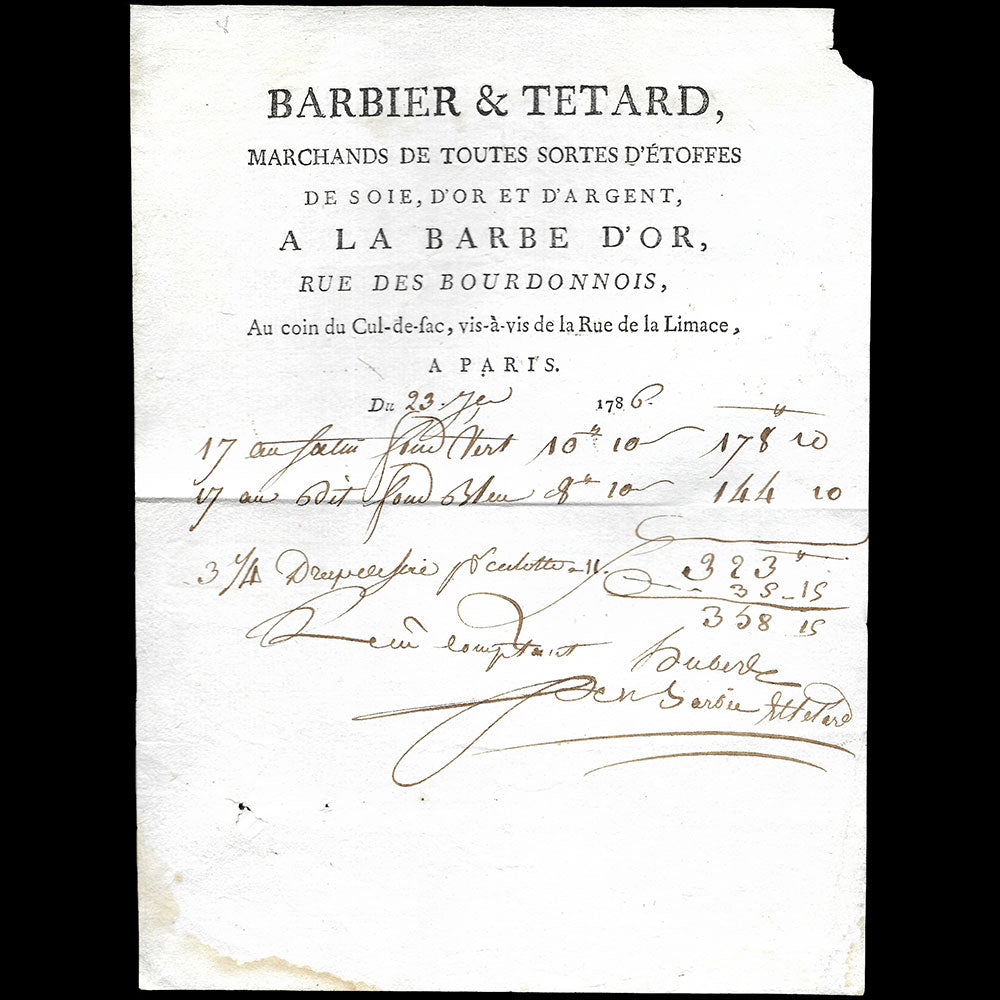 8
BARBIER & TETARD,
MARCHANDS DE TOUTES SORTES D'ÉTOFFES
DE SOIE, D'OR ET D'ARGENT,
A LA BARBE D'OR,
RUE DES BOURDONNOIS,
Au coin du Cul-de-ſac, vis-à-vis de la Rue de la Limace,
A PARIS.
Du 23 1786.
17 au satin fond Vert 10 10 178 10
17 au Dit fond Bleu 8 10 144 10
323
3 1/4 Drap de soie pr culotte 11 35 15
358 15
Reçu comptant
Barbier et Tetard